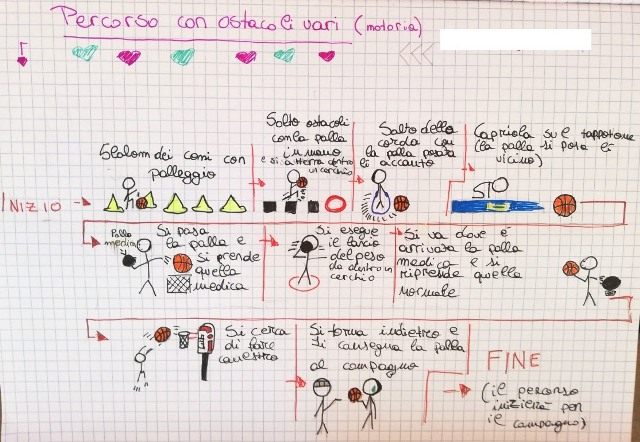 Percorso con ostacoli vari (motoria)
INIZIO
Slalom dei coni con
palleggio
Salto ostacoli
con la palla
in mano
e si atterra dentro
un cerchio
Salto della
corda con
la palla posata
lì accanto
Capriola sul tappetone
(la palla si posa lì
vicino)
Palla
medica
Si posa
la palla e
si prende
quella
medica
Si esegue
il lancio
del peso
da dentro un
cerchio
Si va dove è
arrivata la palla
medica e si
riprende quella
normale
Si cerca
di fare
canestro
Si torna indietro e
si consegna la palla
al compagno
FINE
(il percorso
inizierà per
il compagno)